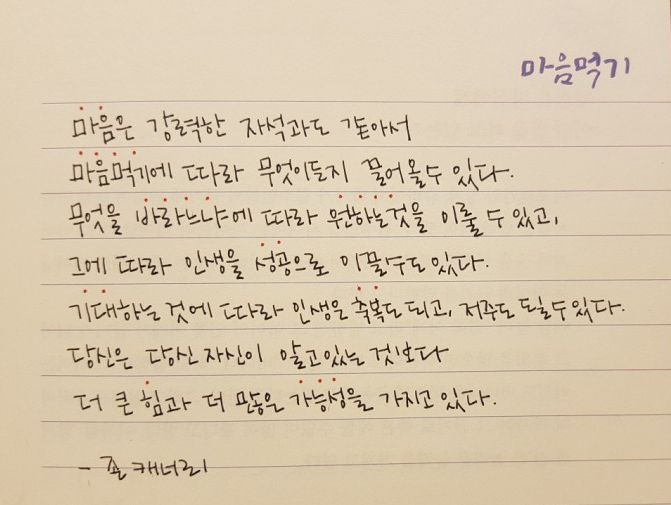 마음먹기
마음은 강력한 자석과도 같아서
마음먹기에 따라 무엇이든지 끌어올수 있다.
무엇을 바라느냐에 따라 원하는것을 이룰 수 있고,
그에 따라 인생을 성공으로 이끌수도 있다.
기대하는 것에 따라 인생은 축복도 되고, 저주도 될수 있다.
당신은 당신 자신이 알고있는 것보다
더 큰 힘과 더 많은 가능성을 가지고 있다.
- 존 캐너리